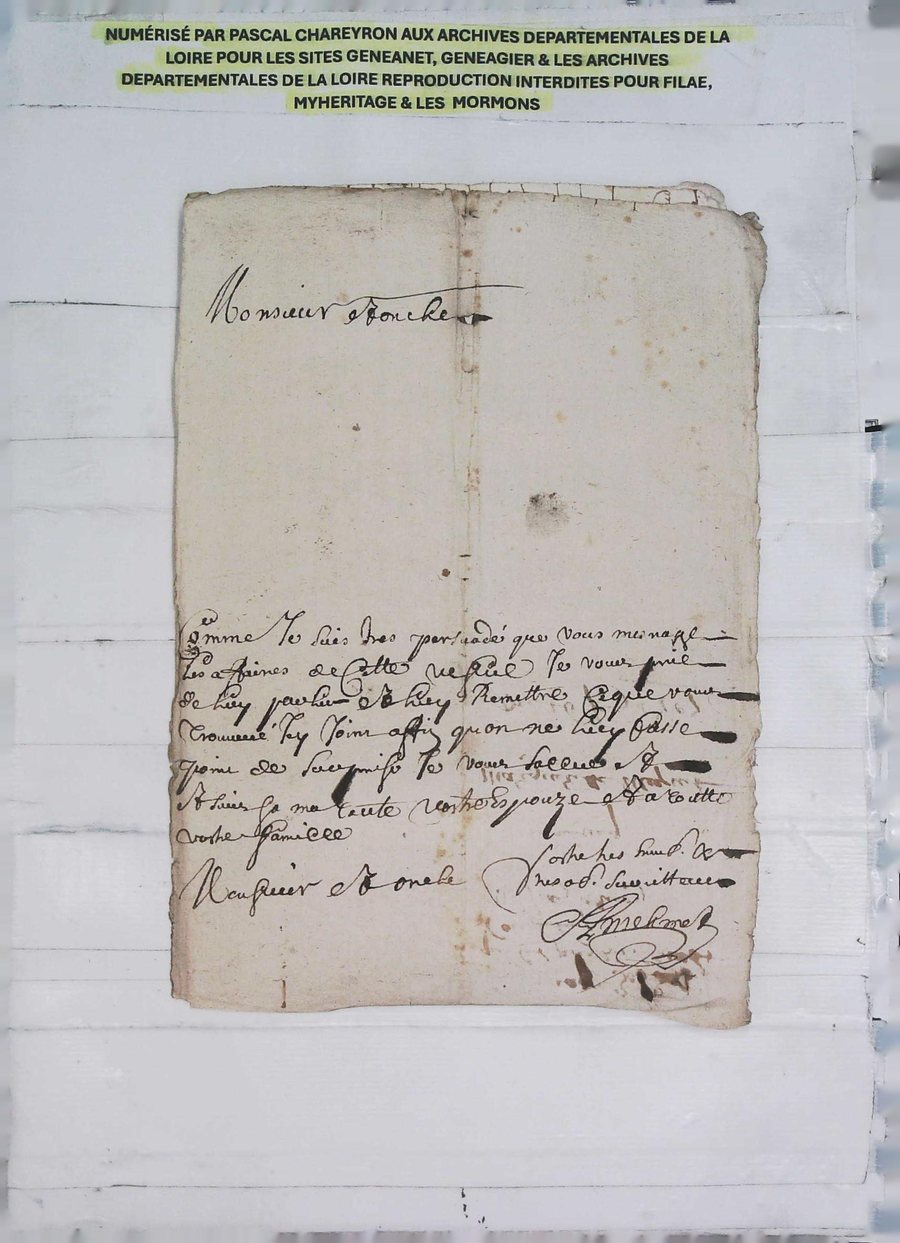 NUMÉRISÉ PAR PASCAL CHAREYRON AUX ARCHIVES DEPARTEMENTALES DE LA
LOIRE POUR LES SITES GENEANET, GENEAGIER & LES ARCHIVES
DEPARTEMENTALES DE LA LOIRE REPRODUCTION INTERDITES POUR FILAE,
MYHERITAGE & LES MORMONS
Monsieur Et oncle
Comme Je suis tres persuadé que vous menagé
les affaires de Cette Je vous prie
de luy parler Et luy Remettre Ce que vous
Trouveré Jcy Joint affin quon ne luy fasse
point de surprise Je vous salue Et
Et ma tante vostre Espouze Et a toutte
vostre famille
Monsieur Et oncle
Vostre tres humb. &
tres ob. serviteur